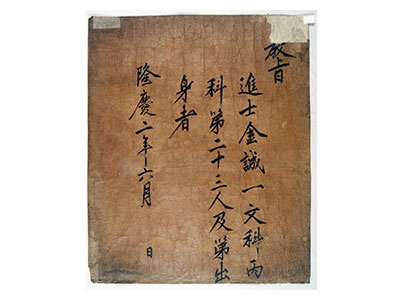 教旨
進士金誠一文科丙
科第二十三人及第出
身者
隆慶二年六月
日